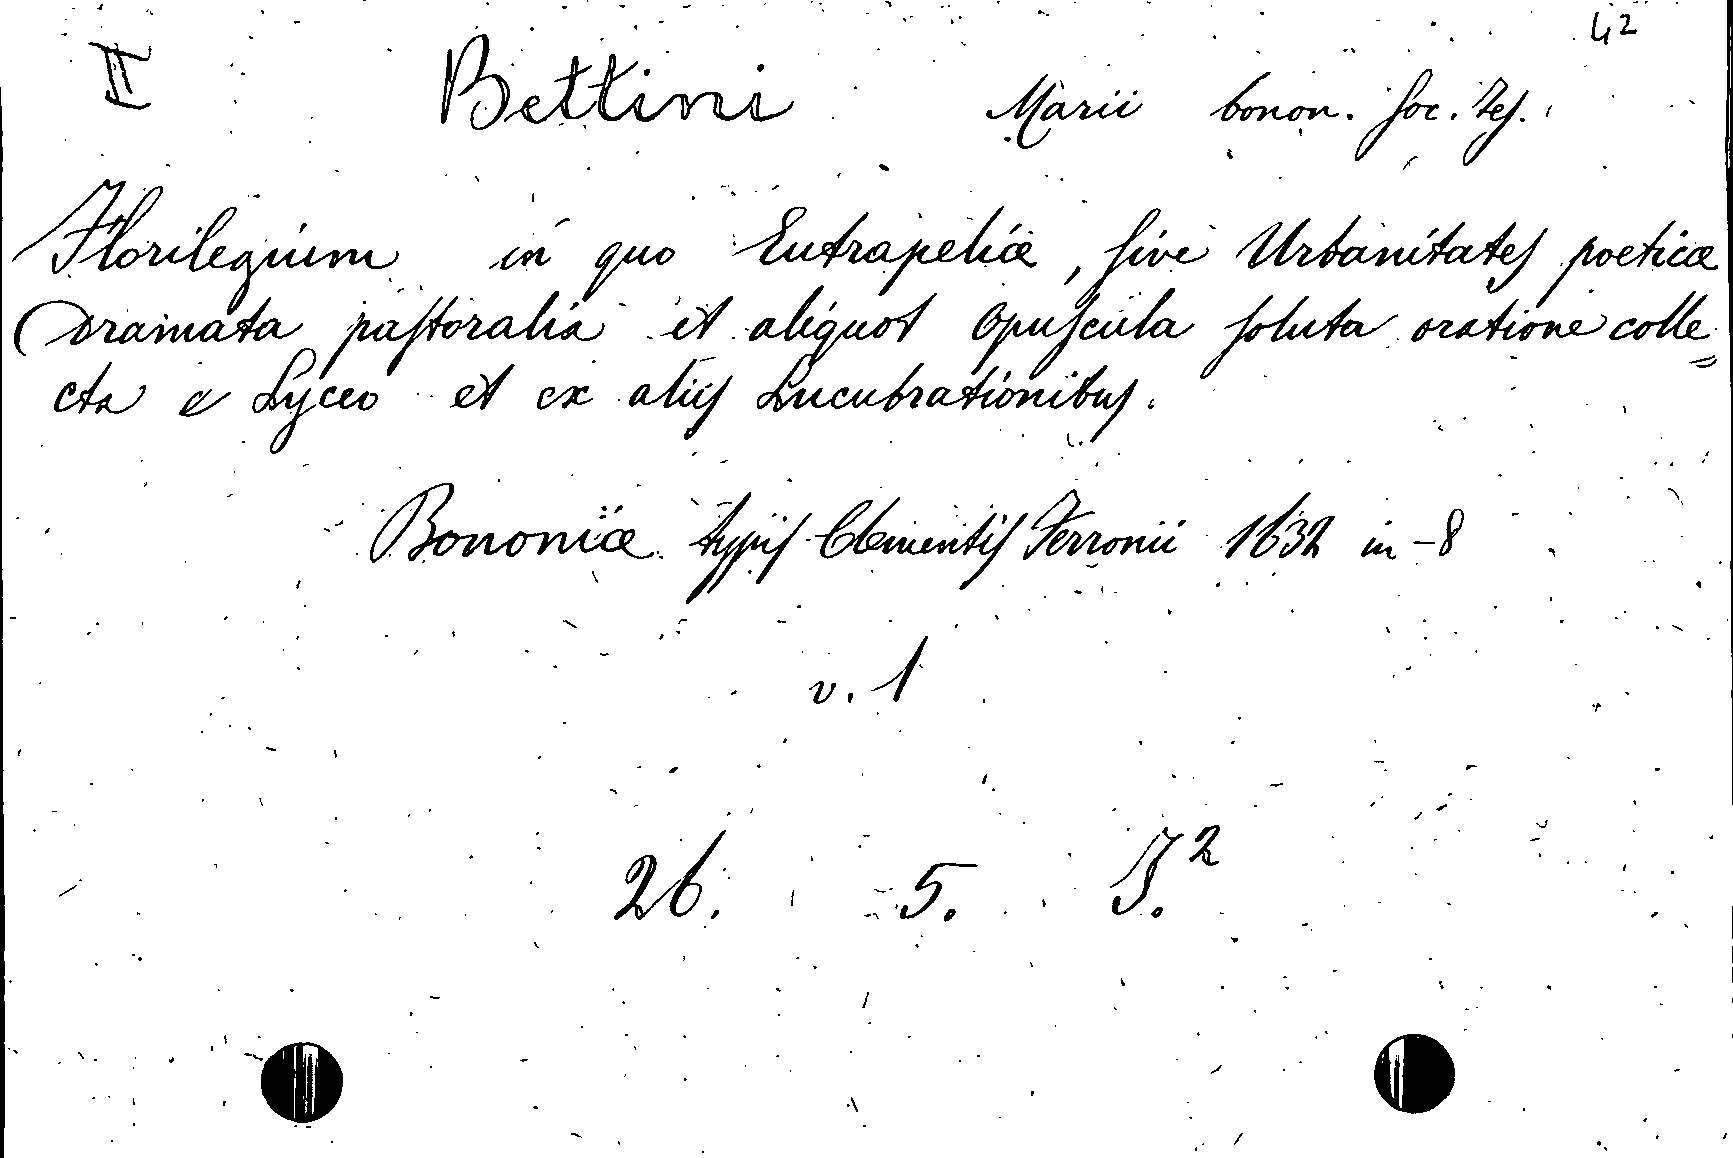 42
II Bettini Marii bonon. Soc. Jes.
Florilegium in quo Eutrapeliæ, sive Urbanitates poeticæ
Dramata pastoralia et aliquot Opuscula soluta oratione colle=
cta e Lyceo et ex aliis Lucubrationibus.
Bononiæ typis Clementis Ferronii 1632 in-8
v. 1
26. 5. J.²